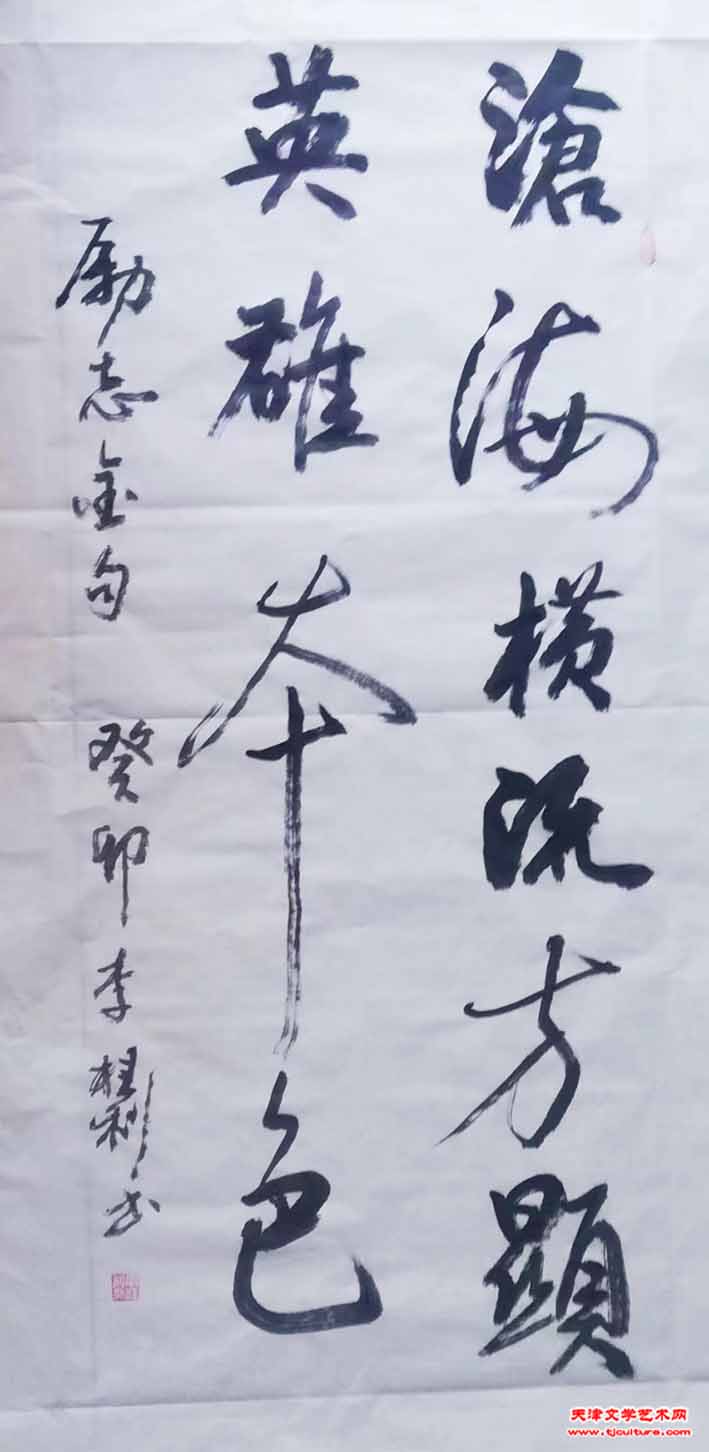 滄海橫流方顯
英雄本色
励志金句 癸卯李桂利书
天津文学艺术网
www.tjculture.com